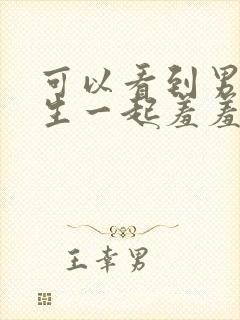 可以看到男
生一起羞羞
王幸男